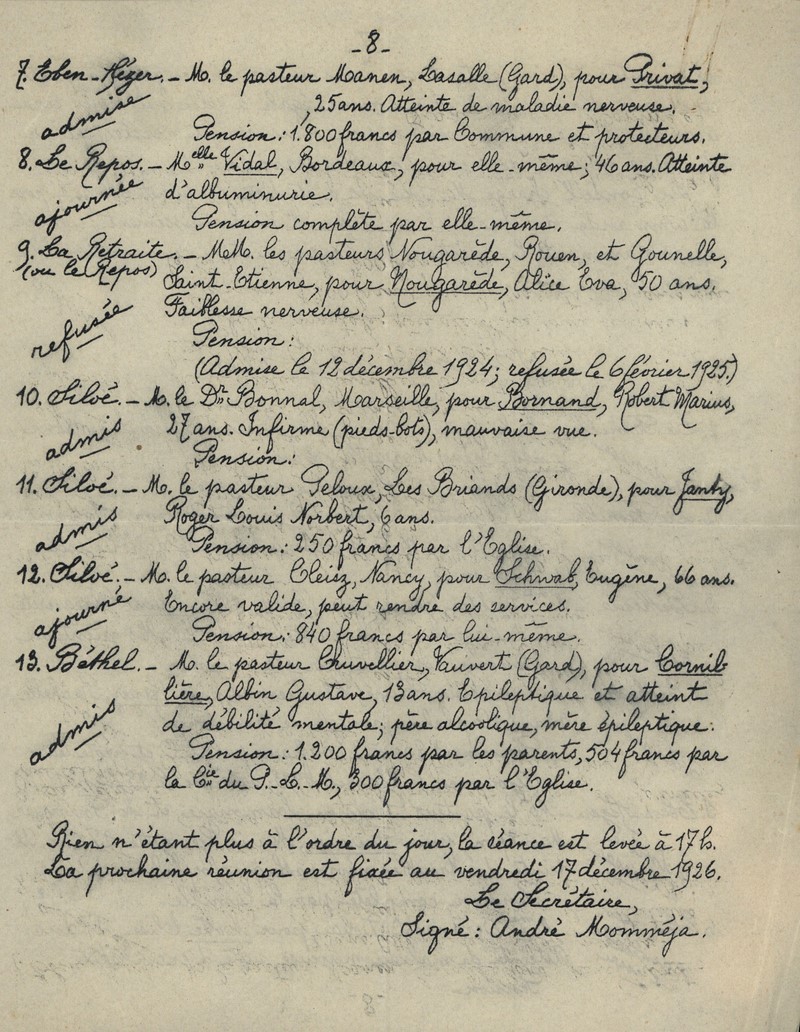 -8-
7. Eben-Hézer. - M. le pasteur Manen, Lasalle (Gard), pour Privat,
admise
, 25 ans. Atteinte de maladie nerveuse.
Pension: 1.800 francs par Commune et protecteurs.
8. Le Repos. - Melle Vidal, Bordeaux, pour elle-même; 46 ans. Atteinte
ajournée
d'albuminurie.
Pension complète par elle-même.
9. La Retraite. - MM. les pasteurs Nougarède, Rouen, et Gounelle,
(ou le Repos)
Saint-Etienne, pour Nougarède, Alice Eva, 50 ans.
Faiblesse nerveuse.
refusée
Pension:
(Admise le 12 décembre 1924; refusée le 6 février 1925.)
10. Siloé. - M. le Dr. Bonnal, Marseille, pour Bornand, Robert Marius,
admis
27 ans. Infirme (pieds-bots), mauvaise vue.
Pension:
11. Siloé. - M. le pasteur Peloux, Les Briands (Gironde), pour
admis
Roger Louis Norbert, 6 ans.
Pension: 250 francs par l'Eglise.
12. Siloé. - M. le pasteur Cleisz, Nancy, pour Schwab, Eugène, 66 ans.
ajourné
Encore valide, peut rendre des services.
Pension: 840 francs par lui-même.
13. Béthel. - M. le pasteur Cruvellier, Vauvert (Gard), pour Cornil-
lière, Albin Gustave, 13 ans. Epileptique et atteint
admis
de débilité mentale; père alcoolique, mère épileptique.
Pension: 1.200 francs par les parents, 504 francs par
la Cie du P.-L.-M., 300 francs par l'Eglise.
Rien n'étant plus à l'ordre du jour, la séance est levée à 17 h.
La prochaine réunion est fixée au vendredi 17 décembre 1926.
Le Secrétaire,
Signé: André Momméja.